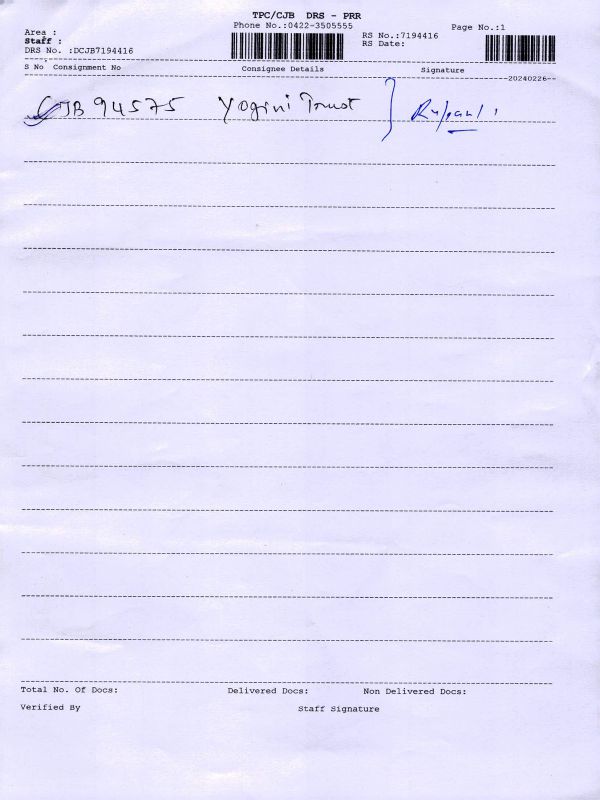 TPC/CJB DRS - PRR
Phone No.:0422-3505555
Page No.:1
Area :
Staff :
DRS No. :DCJB7194416
RS No.:7194416
RS Date:
S No Consignment No Consignee Details Signature
20240226
CJB 94575 Yogini Trust
Total No. Of Docs: Delivered Docs: Non Delivered Docs:
Verified By Staff Signature